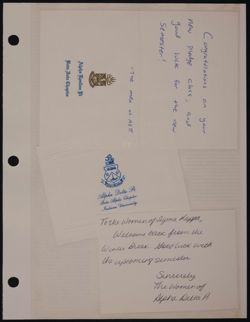 Congratulations on your
new pledge class, and
good luck for the new
semester!
-The men of
Alpha Delta Pi
Beta Alpha Chapter
Indiana University
To the Women of Sigma Kappa,
Welcome back from the
Winter Break. Good luck with
the upcoming semester.
Sincerely
The Women of
Alpha Delta Pi